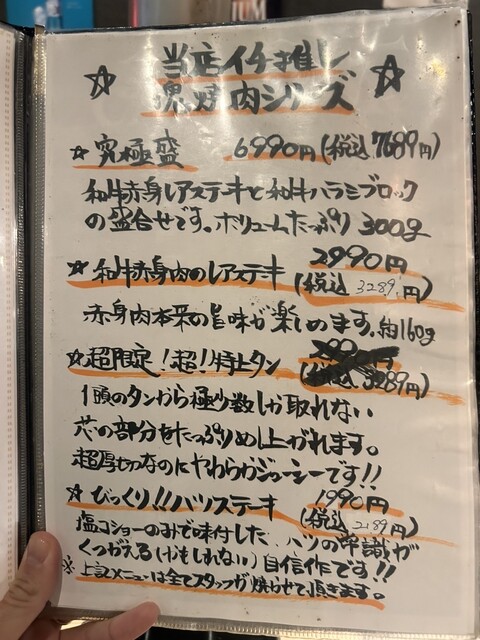 ☆ 当店イチ推し ☆
塊焼肉シリーズ
☆ 究極盛 6990円(税込7689円)
和牛赤身レアステーキと和牛ハラミブロック
の盛合せです。ボリュームたっぷり 300g
☆ 和牛赤身肉のレアステーキ 2990円
(税込 3289円)
赤身肉本来の旨味が楽しめます。約160g
☆ 超限定!超!特上タン
1頭のタンから極少数しか取れない
芯の部分をたっぷりめし上がれます。
超厚切なのにやわらかジューシーです!!
☆ びっくり!!ハツステーキ 1990円
(税込 2189円)
塩コショーのみで味付した、ハツの常識が
くつがえる(かもしれない)自信作です!!
※上記メニューは全てスタッフが焼らせて頂きます。